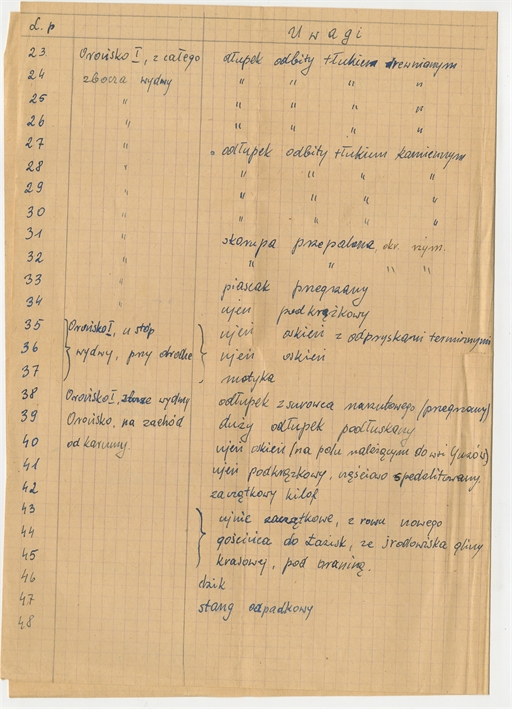 L. p Uwagi
23 Orońsko I, z całego odłupek odbity tłukiem drewnianym
24 zbocza wydmy " " " "
25 " " " " "
26 " " " " "
27 " odłupek odbity tłukiem kamiennym
28 " " " " "
29 " " " " "
30 " " " " "
31 " skorupa przepalona, okr. rzym.
32 " " " " "
33 " piascak przegrzany
34 " rdzeń podkrążkowy
35 Orońsko I, u stóp z odpryskami termicznymi
36 wydmy, przy drodze
37 motyka
38 Orońsko I, zbocze wydmy odłupek z surowca narzutowego (przegrzany)
39 Orońsko, na zachód duży odłupek podłuskany
40 od karczmy. /na polu należącym do wsi
41 podkrążkowy, częściowo
42 zaczątkowy kilof
43 zaczątkowe, z rowu nowego
44 gościńca do Łazisk, ze środowiska gliny
45 krasowej, pod
46 dzik
47 stang odpadkowy
48